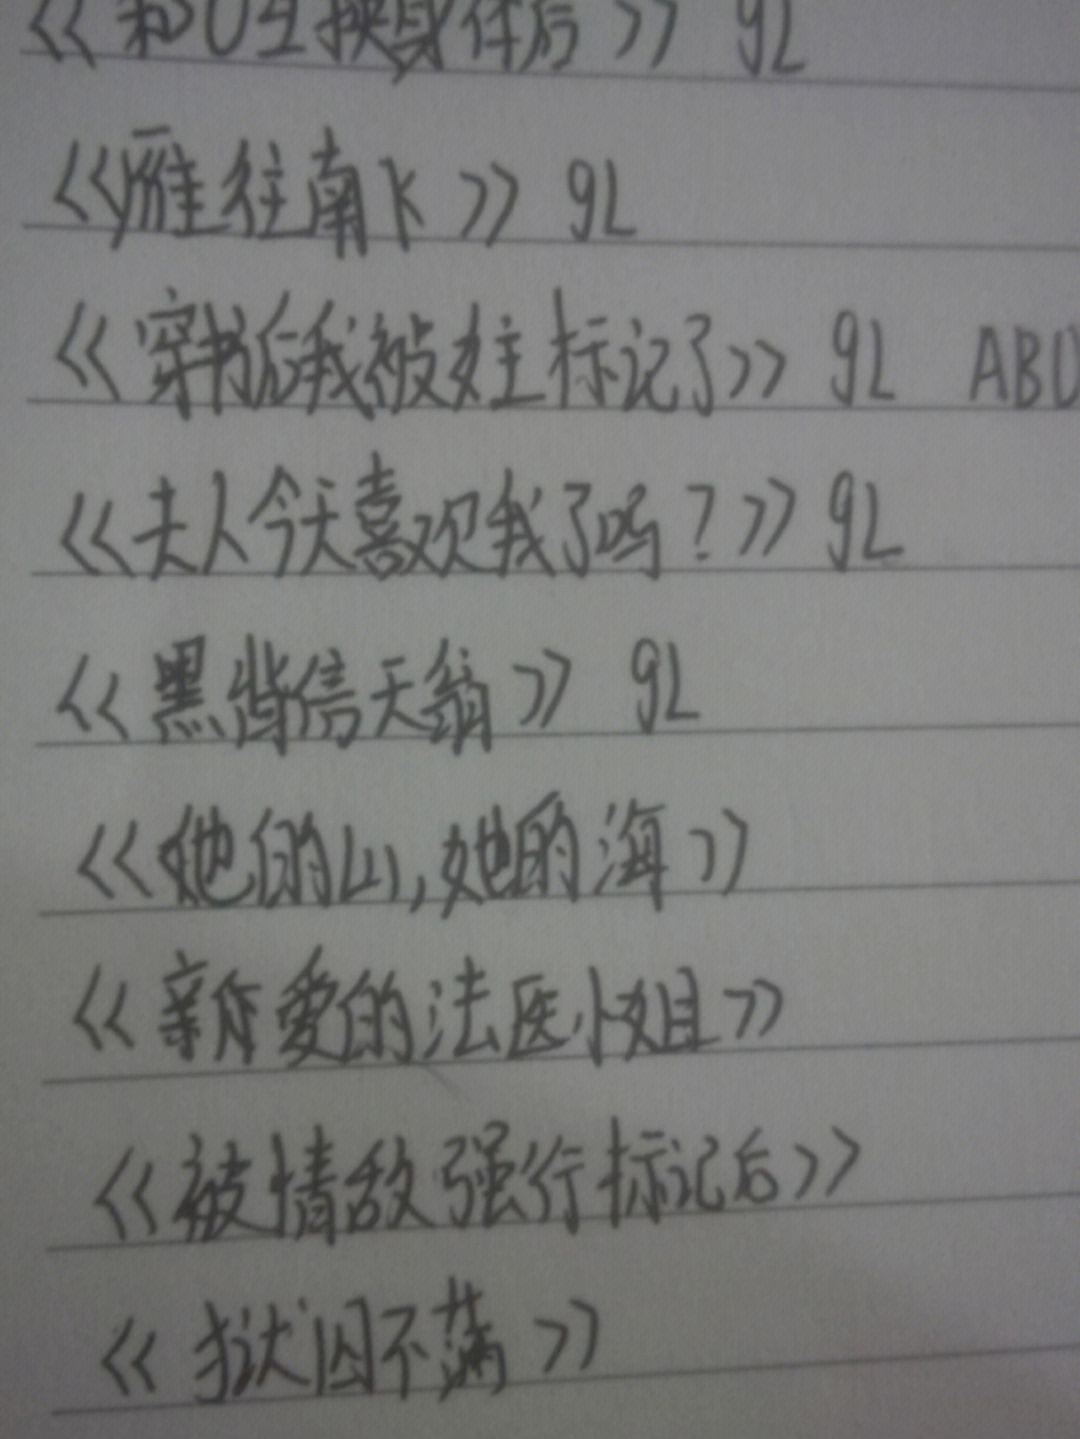 《和O互换身体后》 gL
《雁往南飞》 gL
《穿书后我被女主标记了》 gL ABO
《夫人今天喜欢我了吗？》 gL
《黑背信天翁》 gL
《她的山,她的海》
《亲爱的法医小姐》
《被情敌强行标记后》
《狱囚不满》